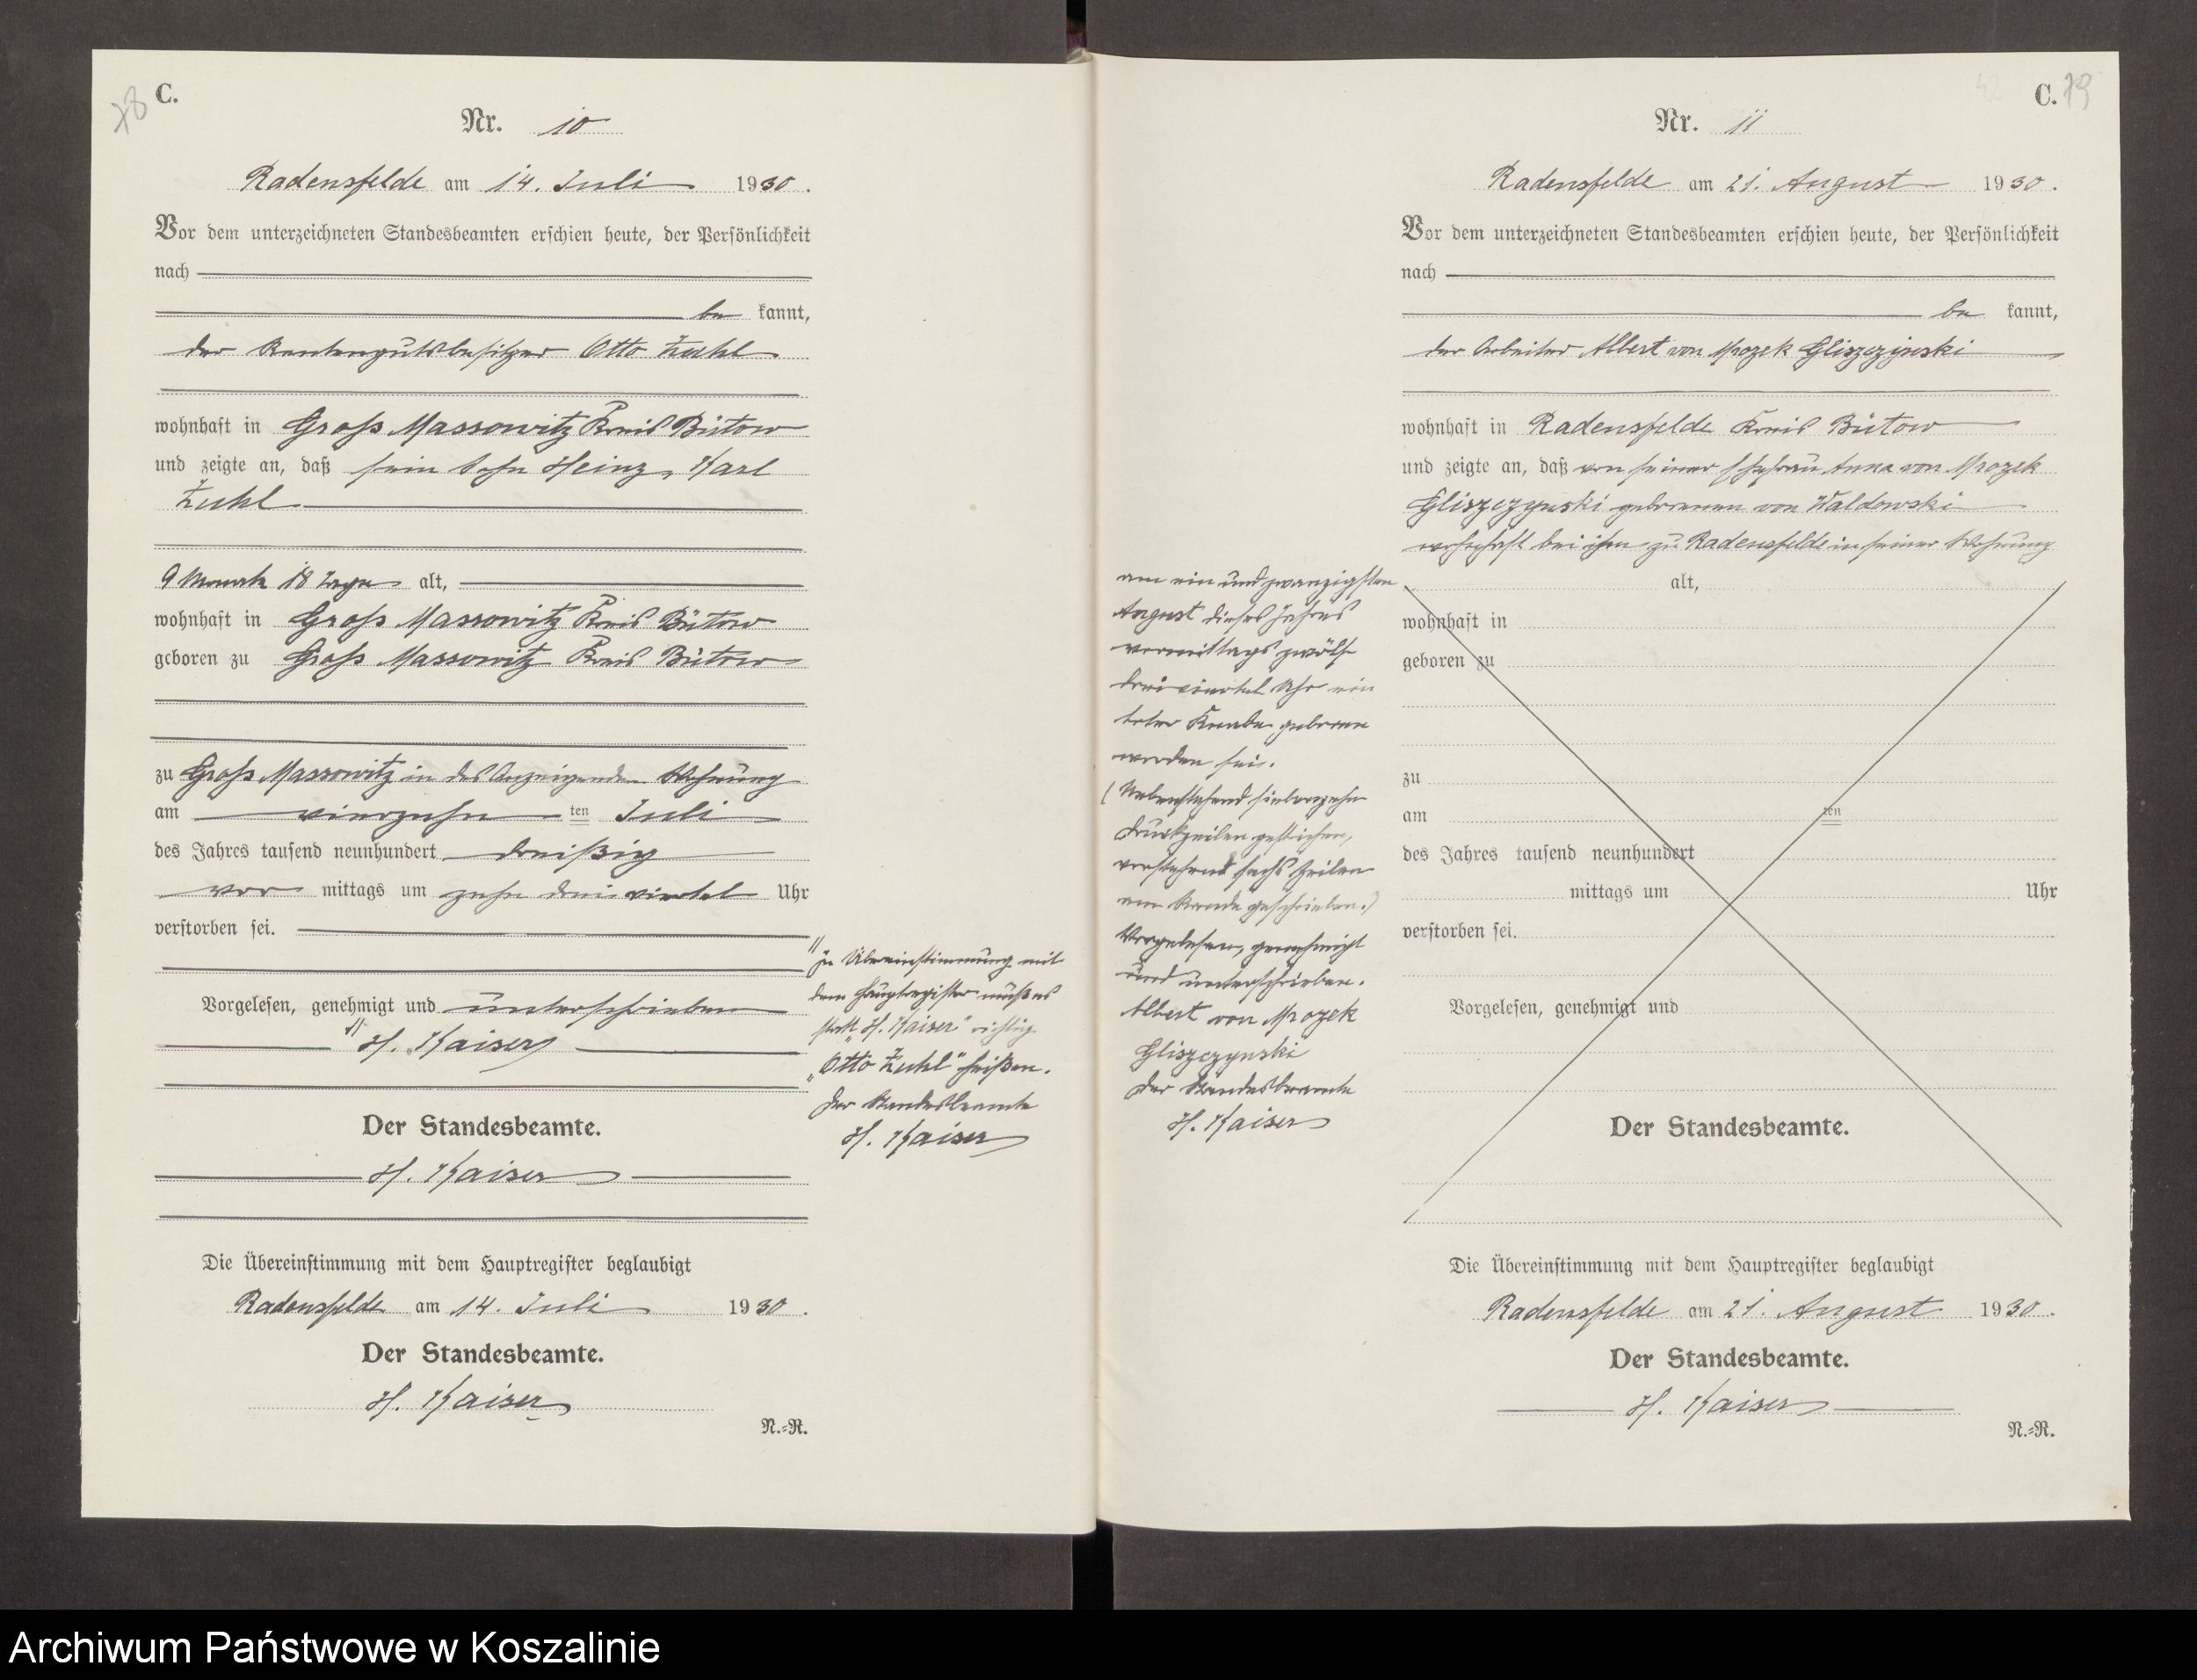 78
C.
Nr. 10
Radensfelde am 14. Juli 1930.
Vor dem unterzeichneten Standesbeamten erschien heute, der Persönlichkeit
nach
be kannt,
der Rentengutsbesitzer Otto Zuhl
wohnhaft in Groß Massowitz Kreis Bütow
und zeigte an, daß sein Sohn Heinz, Karl
Zuhl
9 Monate 18 Tage alt,
wohnhaft in Groß Massowitz Kreis Bütow
geboren zu Groß Massowitz Kreis Bütow
zu Groß Massowitz in des Anzeigenden Wohnung
am vierzehn ten Juli
des Jahres tausend neunhundert dreißig
vor mittags um zehn dreiviertel Uhr
verstorben sei.
Vorgelesen, genehmigt und unterschrieben
1) H. Kaiser
Der Standesbeamte.
H. Kaiser
Die Übereinstimmung mit dem Hauptregister beglaubigt
Radensfelde am 14. Juli 1930.
Der Standesbeamte.
H. Kaiser
N.=R.
1) In Übereinstimmung mit
dem Hauptregister muß es
statt „H. Kaiser" richtig
„Otto Zuhl" heißen.
Der Standesbeamte
H. Kaiser
C. 79
Nr. 11
Radensfelde am 21. August 1930.
Vor dem unterzeichneten Standesbeamten erschien heute, der Persönlichkeit
nach
be kannt,
der Arbeiter Albert von Mrozek Gliszczynski
wohnhaft in Radensfelde Kreis Bütow
und zeigte an, daß von seiner Ehefrau Anna von Mrozek
Gliszczynski geborenen von Waldowski
wohnhaft bei ihm zu Radensfelde in seiner Wohnung
am ein und zwanzigsten
August dieses Jahres
vormittags zwölf
dreiviertel Uhr ein
toter Knabe geboren
worden sei.
(Nebenstehend siebenzehn
Druckzeilen gestrichen,
vorstehend sechs Zeilen
am Rande geschrieben.)
Vorgelesen, genehmigt
und unterschrieben.
Albert von Mrozek
Gliszczynski
Der Standesbeamte
H. Kaiser
alt,
wohnhaft in
geboren zu
zu
am ten
des Jahres tausend neunhundert
mittags um Uhr
verstorben sei.
Vorgelesen, genehmigt und
Der Standesbeamte.
Die Übereinstimmung mit dem Hauptregister beglaubigt
Radensfelde am 21. August 1930.
Der Standesbeamte.
H. Kaiser
N.=R.
Archiwum Państwowe w Koszalinie